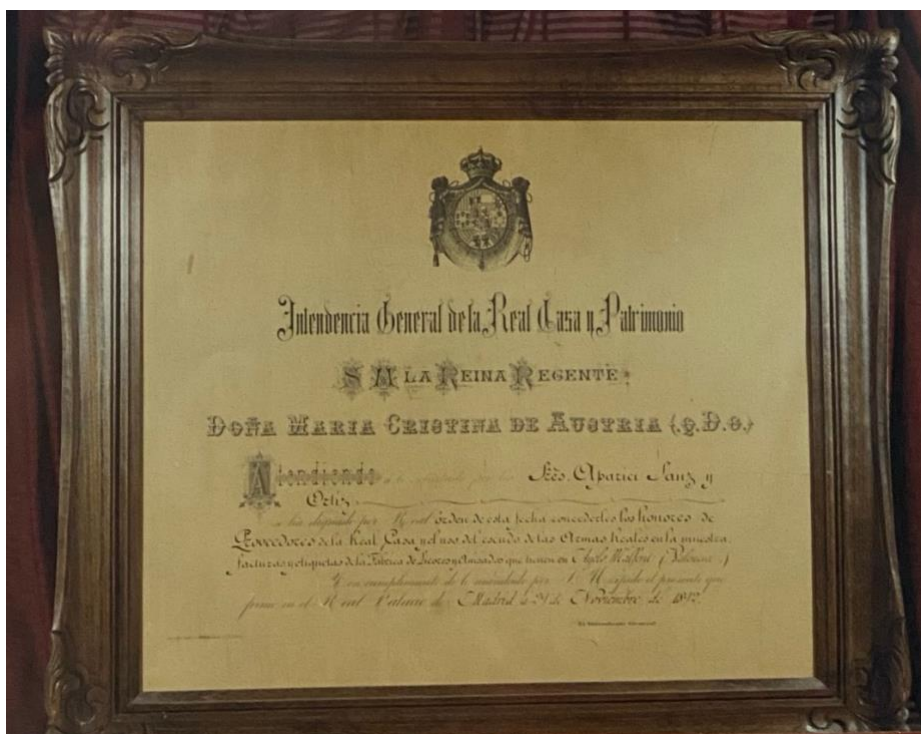 Intendencia General de la Real Casa y Patrimonio
S M LA REINA REGENTE
DOÑA MARIA CRISTINA DE AUSTRIA (Q.D.G.)
Atendiendo a lo solicitado por los Sres. Aparici Sanz y
Ortiz
se ha dignado por Real órden de esta fecha concederles los honores de
Proveedores de la Real Casa y el uso del escudo de las Armas Reales en la muestra,
facturas y etiquetas de la Fábrica de Licores y Anisados que tienen en (Valencia)
Y en cumplimiento de lo mandado por S. M. expido el presente que
firmo en el Real Palacio de Madrid á de Noviembre de
El Intendente general